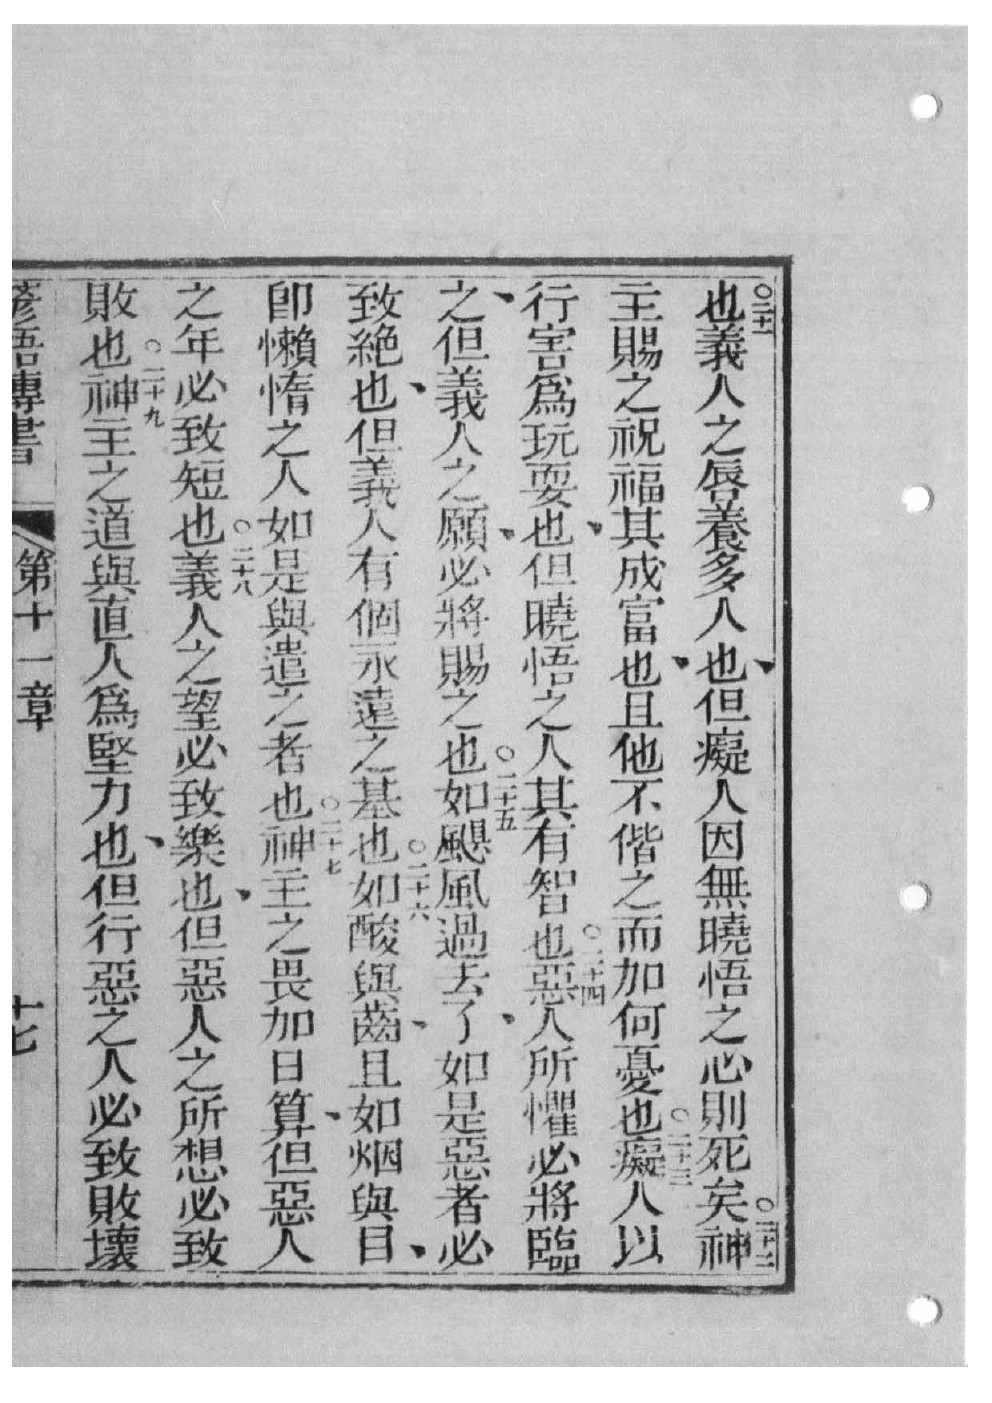 〇二十一
也義人之唇養多人也但癡人因無曉悟之心則死矣〇二十二神
主賜之祝福其成富也且他不偕之而加何憂也〇二十三癡人以
行害為玩耍也但曉悟之人其有智也〇二十四惡人所懼必將臨
之但義人之願必將賜之也〇二十五如颶風過去了如是惡者必
致絕也但義人有個永遠之基也〇二十六如酸與齒且如烟與目
卽懶惰之人如是與遣之者也〇二十七神主之畏加日算但惡人
之年必致短也〇二十八義人之望必致樂也但惡人之所想必致
敗也〇二十九神主之道與直人為堅力也但行惡之人必致敗壞
諺語傳書 第十一章 十七